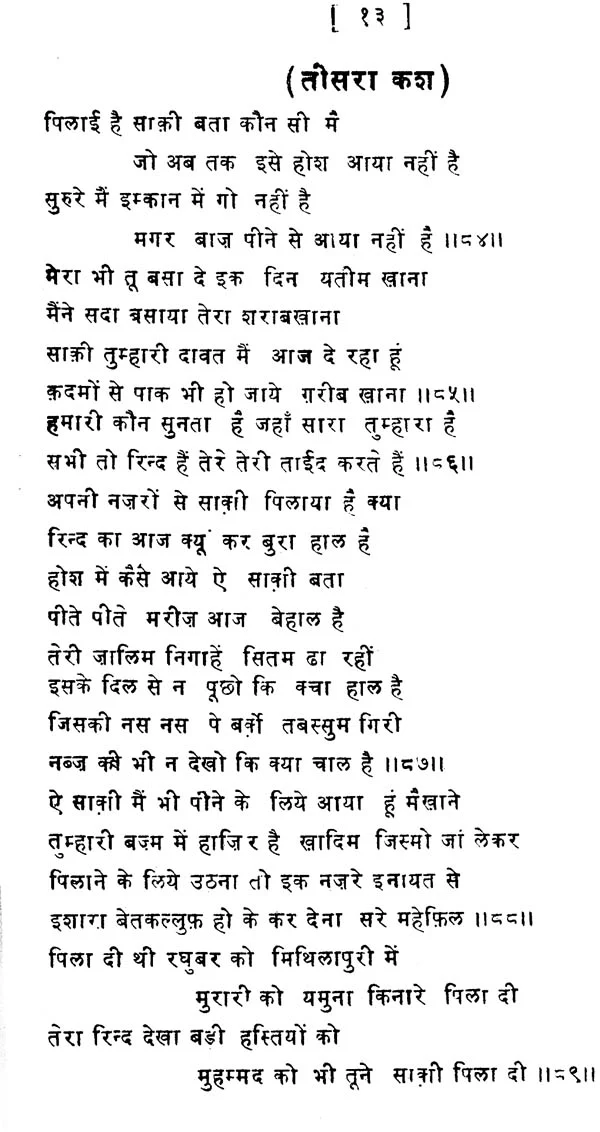 [ १३ ]
(तीसरा कश)
पिलाई है साक़ी बता कौन सी मै
जो अब तक इसे होश आया नहीं है
सुरुरे मैं इम्कान में गो नहीं है
मगर बाज़ पीने से आया नहीं है ॥८४॥
मेरा भी तू बसा दे इक दिन यतीम खाना
मैंने सदा बसाया तेरा शराबखाना
साक़ी तुम्हारी दावत मैं आज दे रहा हूं
क़दमों से पाक भी हो जाये ग़रीब खाना ॥८५॥
हमारी कौन सुनता है जहाँ सारा तुम्हारा है
सभी तो रिन्द हैं तेरे तेरी ताईद करते हैं ॥८६॥
अपनी नज़रों से साक़ी पिलाया है क्या
रिन्द का आज क्यूं कर बुरा हाल है
होश में कैसे आये ऐ साक़ी बता
पीते पीते मरीज़ आज बेहाल है
तेरी ज़ालिम निगाहें सितम ढा रहीं
इसके दिल से न पूछो कि क्या हाल है
जिसकी नस नस पे बर्क़े तबस्सुम गिरी
नब्ज़ की भी न देखो कि क्या चाल है ॥८७॥
ऐ साक़ी मैं भी पीने के लिये आया हूं मैखाने
तुम्हारी बज़्म में हाज़िर है खादिम जिस्मो जां लेकर
पिलाने के लिये उठना तो इक नज़रे इनायत से
इशारा बेतकल्लुफ़ हो के कर देना सरे महेफ़िल ॥८८॥
पिला दी थी रघुबर को मिथिलापुरी में
मुरारी को यमुना किनारे पिला दी
तेरा रिन्द देखा बड़ी हस्तियों को
मुहम्मद को भी तूने साक़ी पिला दी ॥८९॥